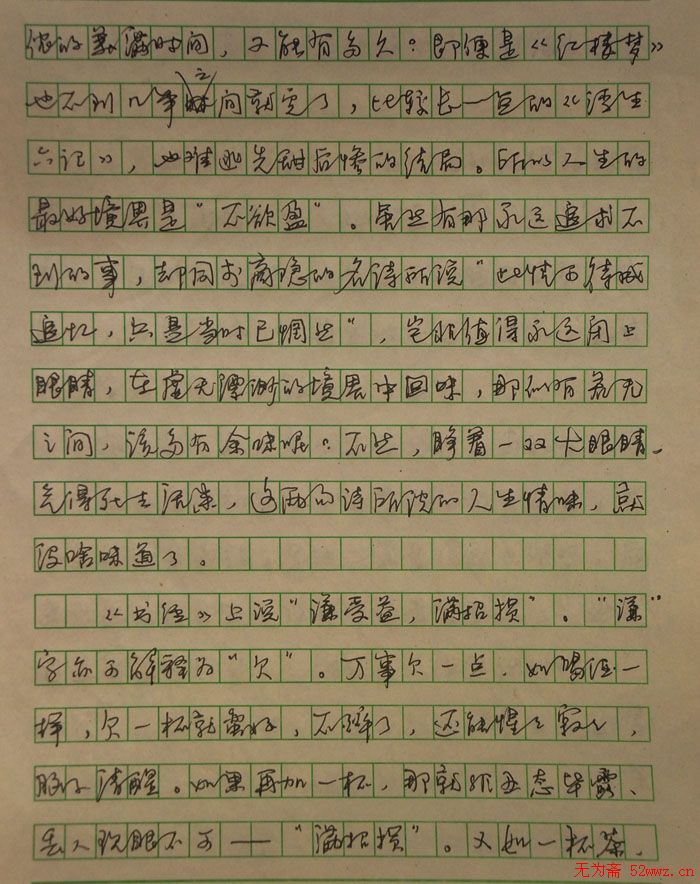 的美满时间，又能有多久？即便是《红楼梦》
也不到几年之间就完了，比较长一点的《浮生
六记》，也难逃先甜后惨的结局。所以人生的
最好境界是“不欲盈”。虽然有那永远追求不
到的事，却同李商隐的名诗所说“此情可待成
追忆，只是当时已惘然”，岂非值得永远闭上
眼睛，在虚无漂渺的境界中回味，那似有若无
之间，该多有余味呢？不然，睁着一双大眼睛，
得死去活来，这两句诗所说的人生情味，就
没啥味道了。
《书经》上说“谦受益，满招损”。“谦”
字亦可解释为“欠”。万事欠一点，如喝酒一
样，欠一杯就蛮好，不醉了，还能惺惺寂寂，
脑子清醒。如果再加一杯，那就非丑态毕露、
丢人现眼不可——“满招损”。又如一杯茶，
无为斋 52wwz.cn